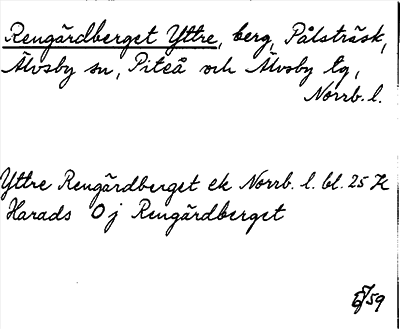 Rengårdberget Yttre, berg, Pålsträsk,
Älvsby sn, Piteå och Älvsby tg,
Norrb. l.
Yttre Rengårdberget ek Norrb. l. bl. 25 H
Harads Oj Rengårdberget
59